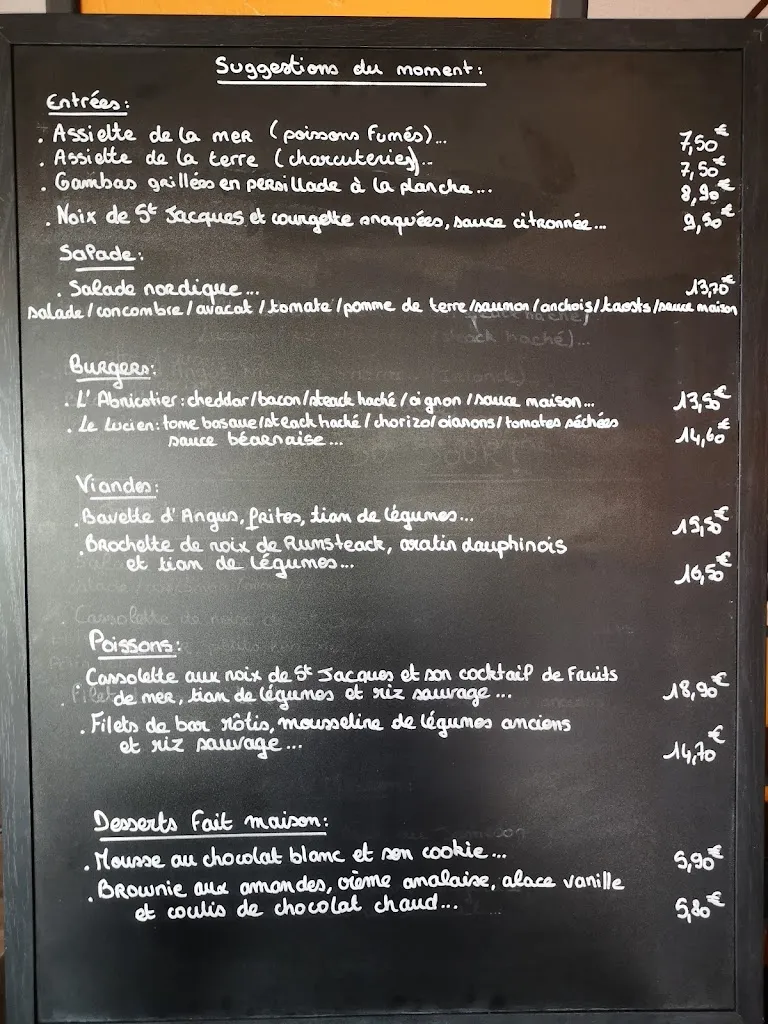 Suggestions du moment:
Entrées:
. Assiette de la mer (poissons fumés)... 7,50€
. Assiette de la terre (charcuteries)... 7,50€
. Gambas grillées en persillade à la plancha... 8,90€
. Noix de St Jacques et courgette snaquées, sauce citronnée... 9,50€
Salade:
. Salade nordique... 13,70€
salade/concombre/avacat/tomate/pomme de terre/saumon/anchois/taosts/sauce maison
Burgers:
. L'Abricotier: cheddar/bacon/steack haché/oignon/sauce maison... 13,50€
. Le Lucien: tome basque/steack haché/chorizo/oignons/tomates séchées
sauce béarnaise... 14,60€
Viandes:
. Bavette d'Angus, frites, tian de légumes... 15,50€
. Brochette de noix de Rumsteack, gratin dauphinois
et tian de légumes... 16,50€
Poissons:
. Cassolette aux noix de St Jacques et son cocktail de fruits
de mer, tian de légumes et riz sauvage... 18,90€
. Filets de bar rôtis, mousseline de légumes anciens
et riz sauvage... 14,70€
Desserts fait maison:
. Mousse au chocolat blanc et son cookie... 5,90€
. Brownie aux amandes, crème anglaise, glace vanille
et coulis de chocolat chaud... 5,80€